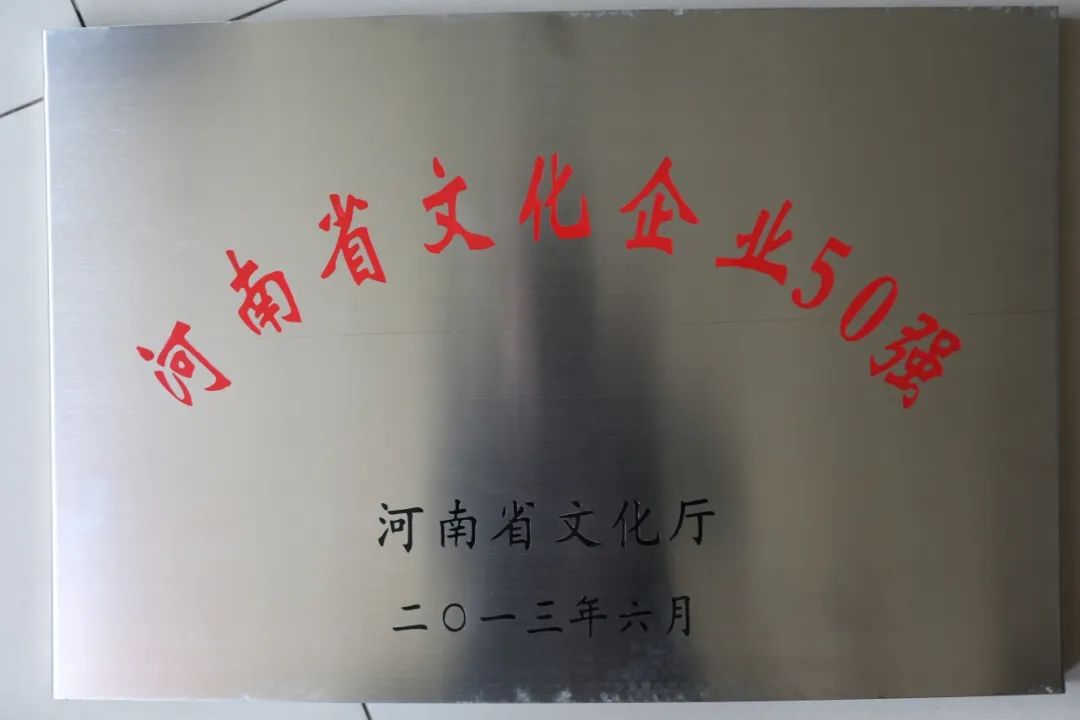 河南省文化企业50强
河南省文化厅
二〇一三年六月